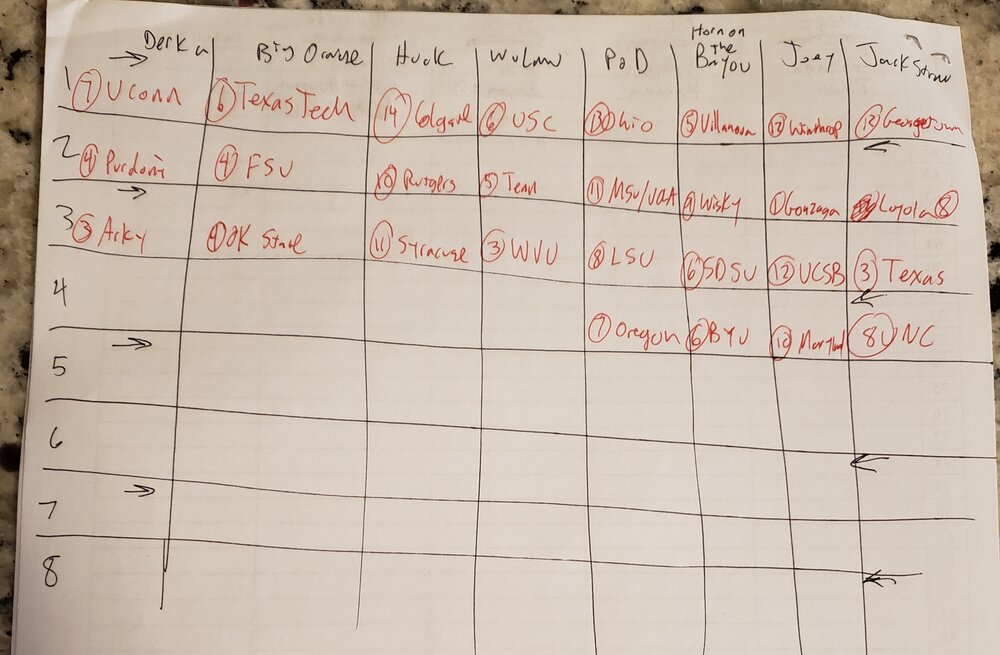 Derk Big Orange Huck Wulaw PaD Horn on The Bayou Joey Jack Straw
1 ⑦ UConn ⑥ Texas Tech ⑭ Colgate ⑥ USC ⑬ Ohio ⑤ Villanova ⑫ Winthrop ⑫ Georgetown
2 ④ Purdue ④ FSU ⑩ Rutgers ⑤ Tenn ⑪ MSU/UCLA ⑨ Wisky ① Gonzaga Loyola ⑧
3 ③ Arky ④ OK State ⑪ Syracuse ③ WVU ⑧ LSU ⑥ SDSU ⑫ UCSB ③ Texas
4 ⑦ Oregon ⑥ BYU ⑩ Maryland ⑧ UNC
5
6
7
8